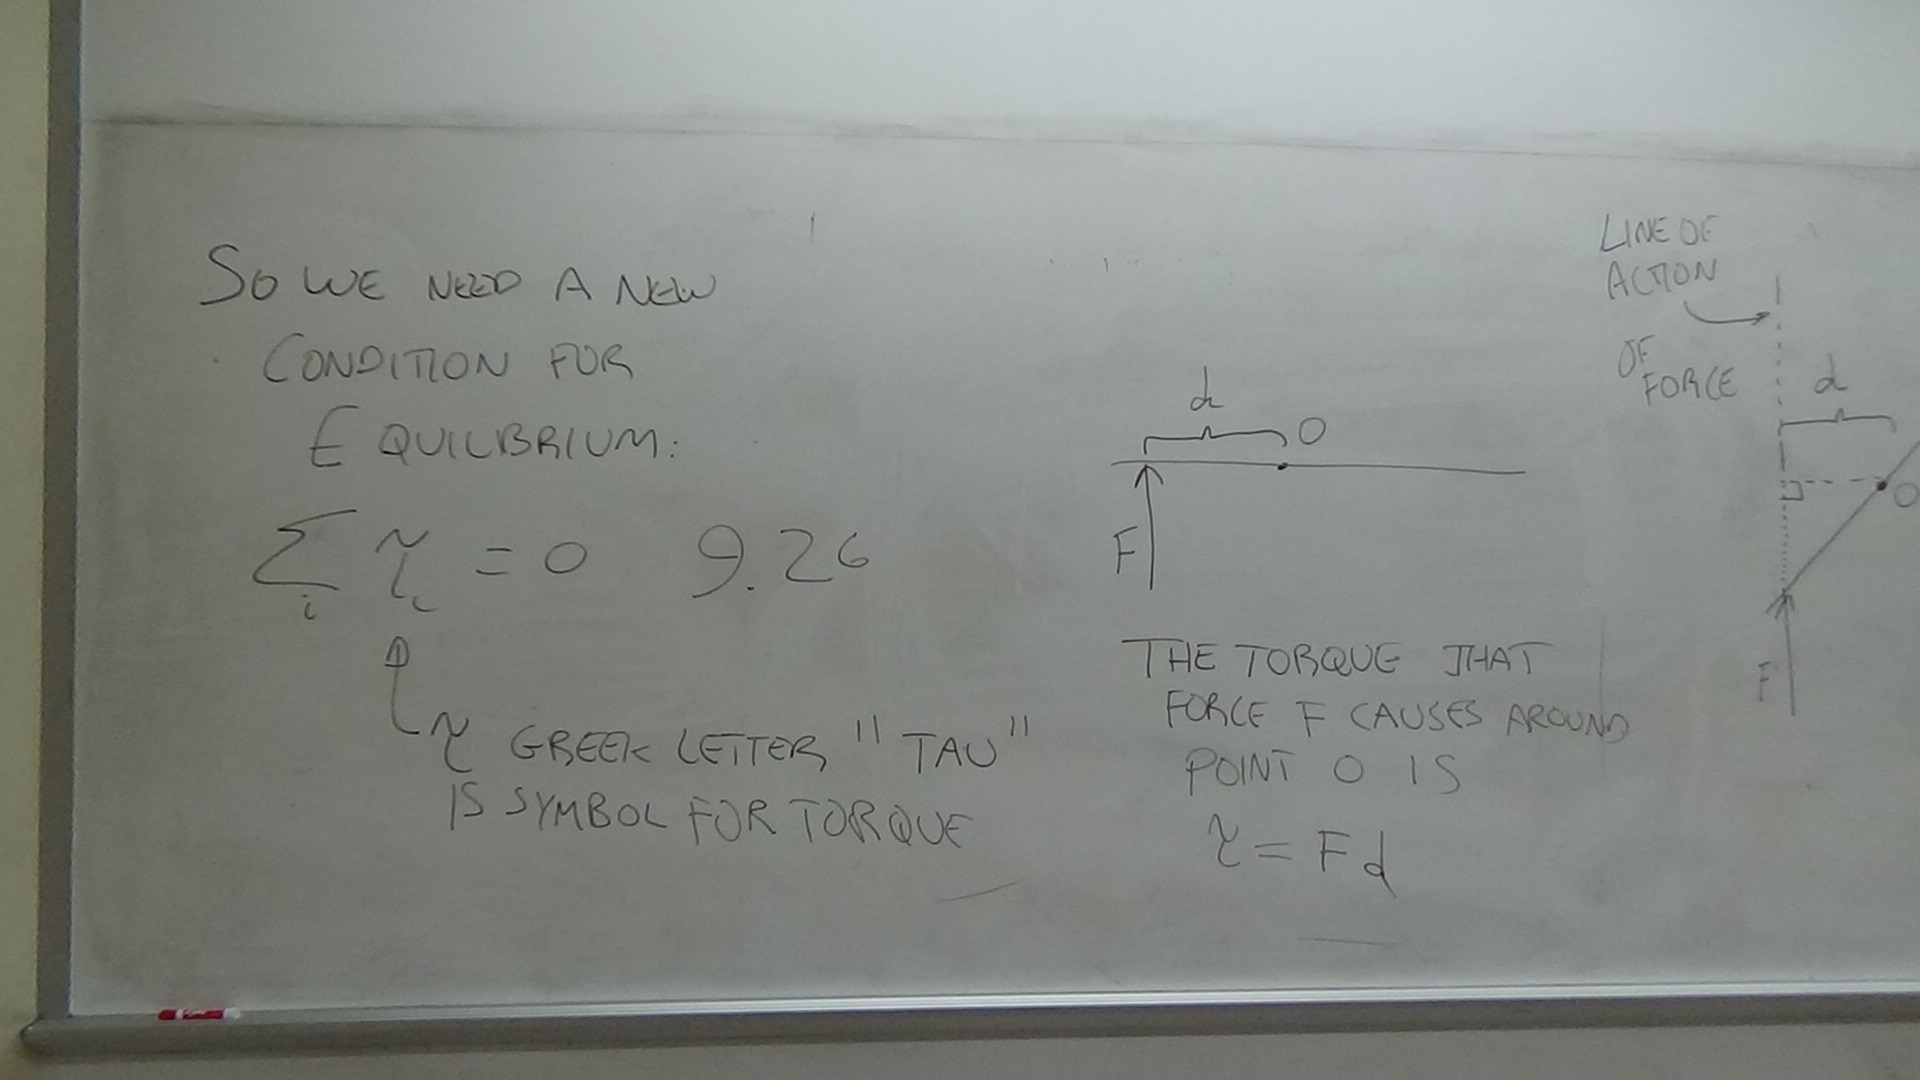 SO WE NEED A NEW
CONDITION FOR
EQUILBRIUM:
Σ τi = 0 9.26
i
τ GREEK LETTER "TAU"
IS SYMBOL FOR TORQUE
d
O
F
THE TORQUE THAT
FORCE F CAUSES AROUND
POINT O IS
τ = Fd
LINE OF
ACTION
OF
FORCE
d
O
F